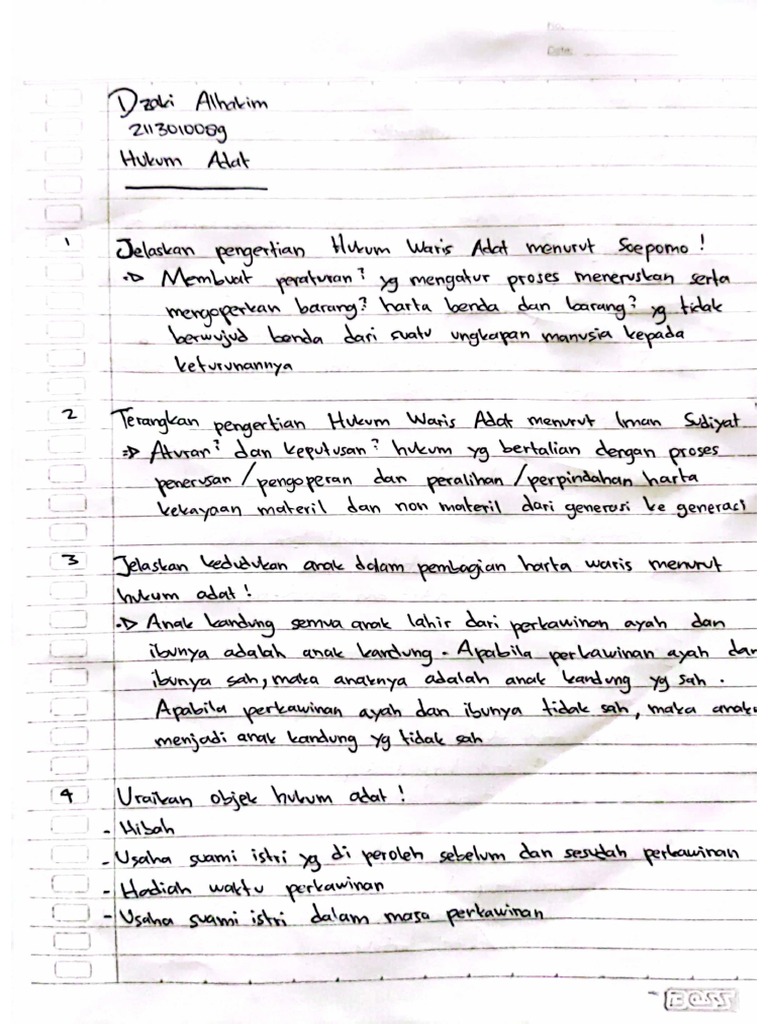 No.
Date:
Dzaki Alhakim
2113010089
Hukum Adat
1 Jelaskan pengertian Hukum Waris Adat menurut Soepomo !
Membuat peraturan² yg mengatur proses meneruskan serta
mengoperkan barang² harta benda dan barang² yg tidak
berwujud benda dari suatu ungkapan manusia kepada
keturunannya
2 Terangkan pengertian Hukum Waris Adat menurut Iman Sudiyat
=> Aturan² dan keputusan² hukum yg bertalian dengan proses
penerusan / pengoperan dan peralihan / perpindahan harta
kekayaan materil dan non materil dari generasi ke generasi
3 Jelaskan kedudukan anak dalam pembagian harta waris menurut
hukum adat !
Anak kandung semua anak lahir dari perkawinan ayah dan
ibunya adalah anak kandung. Apabila perkawinan ayah dan
ibunya sah, maka anaknya adalah anak kandung yg sah.
Apabila perkawinan ayah dan ibunya tidak sah, maka anak
menjadi anak kandung yg tidak sah
4 Uraikan objek hukum adat !
- Hibah
- Usaha suami istri yg di peroleh sebelum dan sesudah perkawinan
- Hadiah waktu perkawinan
- Usaha suami istri dalam masa perkawinan
BOSS